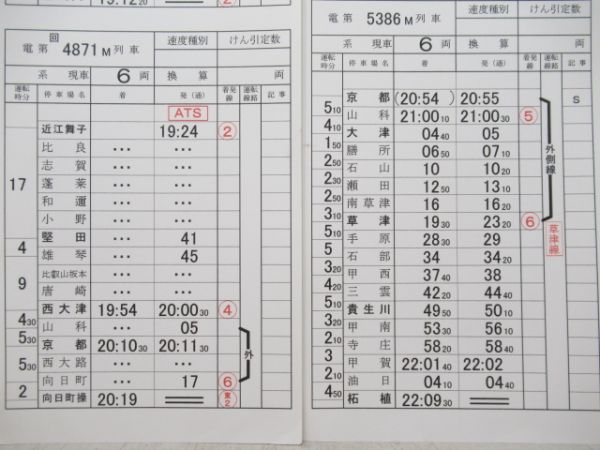 13.12 20
②
回
電 第 4871 M 列 車
速度種別
けん引定数
系 現車 6 両
換 算
両
運転時分
停 車 場 名
着
発 (通)
着発線
運転線路
記 事
ATS
近江舞子 19:24 ②
比 良 ・・・ ・・・
志 賀 ・・・ ・・・
17 蓬 莱 ・・・ ・・・
和 邇 ・・・ ・・・
小 野 ・・・ ・・・
堅 田 ・・・ 41
4 雄 琴 ・・・ 45
比叡山坂本 ・・・ ・・・
9 唐 崎 ・・・ ・・・
西大津 19:54 20:00 30 ④
4 30 山 科 ・・・ 05
5 30 京 都 20:10 30 20:11 30 外
西大路 ・・・ ・・・
5 30 向日町 ・・・ 17 ⑥
2 向日町操 20:19 ═══ 東2
電 第 5386 M 列 車
速度種別
けん引定数
系 現車 6 両
換 算
両
運転時分
停 車 場 名
着
発 (通)
着発線
運転線路
記 事
京 都 (20:54 ) 20:55 S
5 10 山 科 21:00 10 21:00 30 ⑤
3 10 大 津 04 40 05
1 50 膳 所 06 50 07 10
石 山 10 10 20
瀬 田 12 50 13 10
南草津 16 16 20
草 津 19 30 23 20 ⑥
外側線
草津線
手 原 28 30 29
石 部 34 34 20
甲 西 37 40 38
三 雲 42 20 44 40
貴生川 49 50 50 10
甲 南 53 30 56 10
寺 庄 58 20 58 40
甲 賀 22:01 40 22:02
油 日 04 10 04 40
4 50 柘 植 22:09 30 ═══